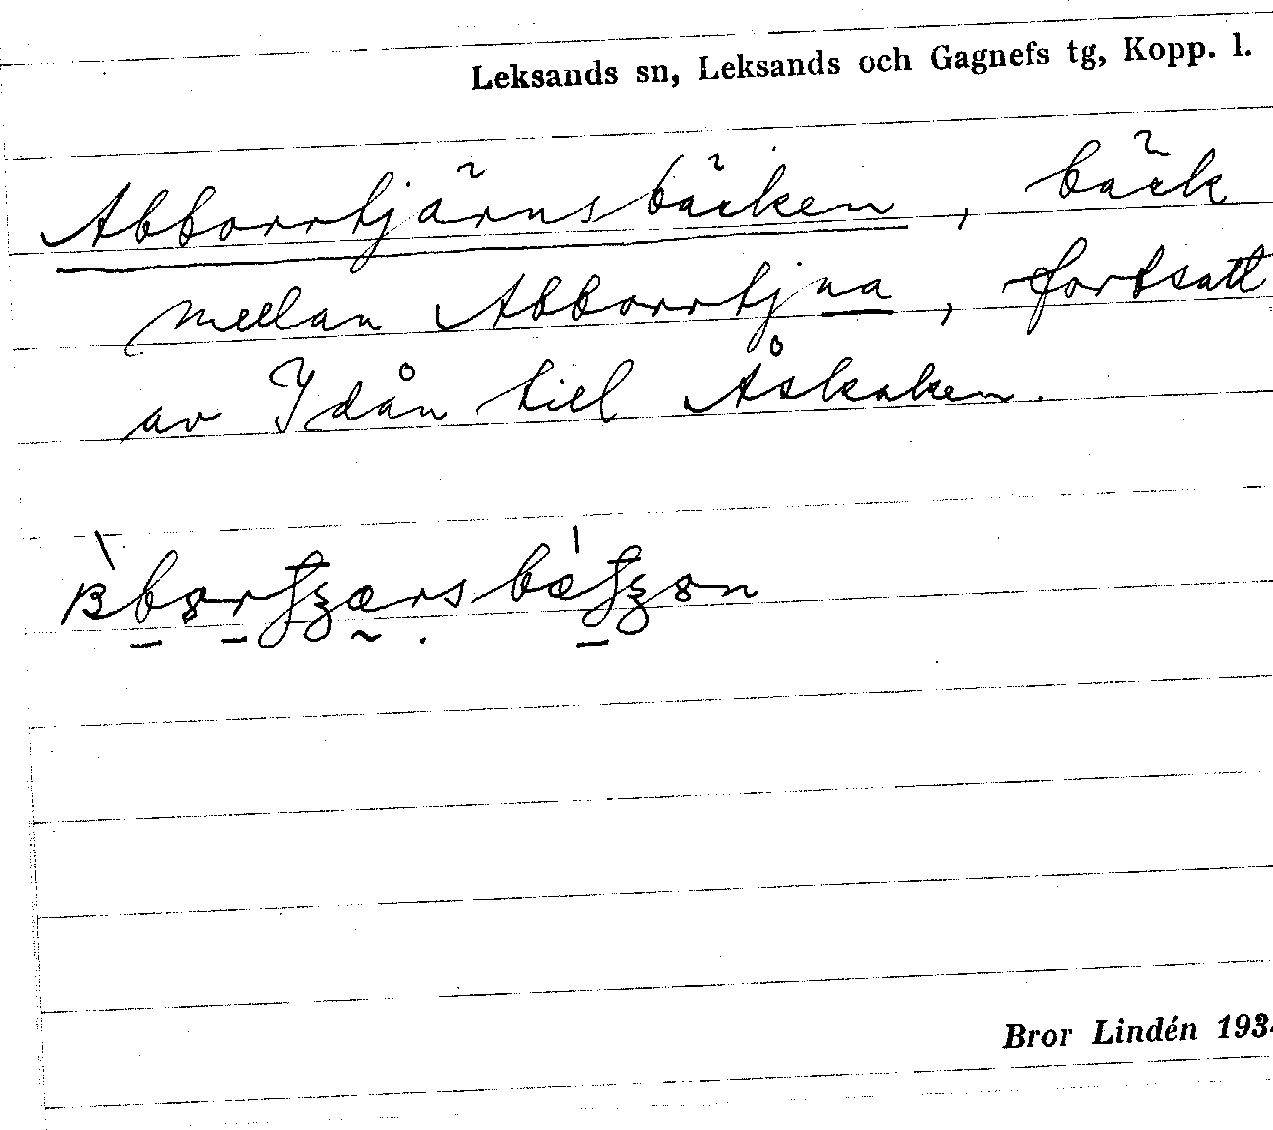 Leksands sn, Leksands och Gagnefs tg, Kopp. l.
Abborrtjärnsbäcken, bäck
mellan Abborrtjna, fortsatt
av Idån till Åskaken.
Bror Lindén 193